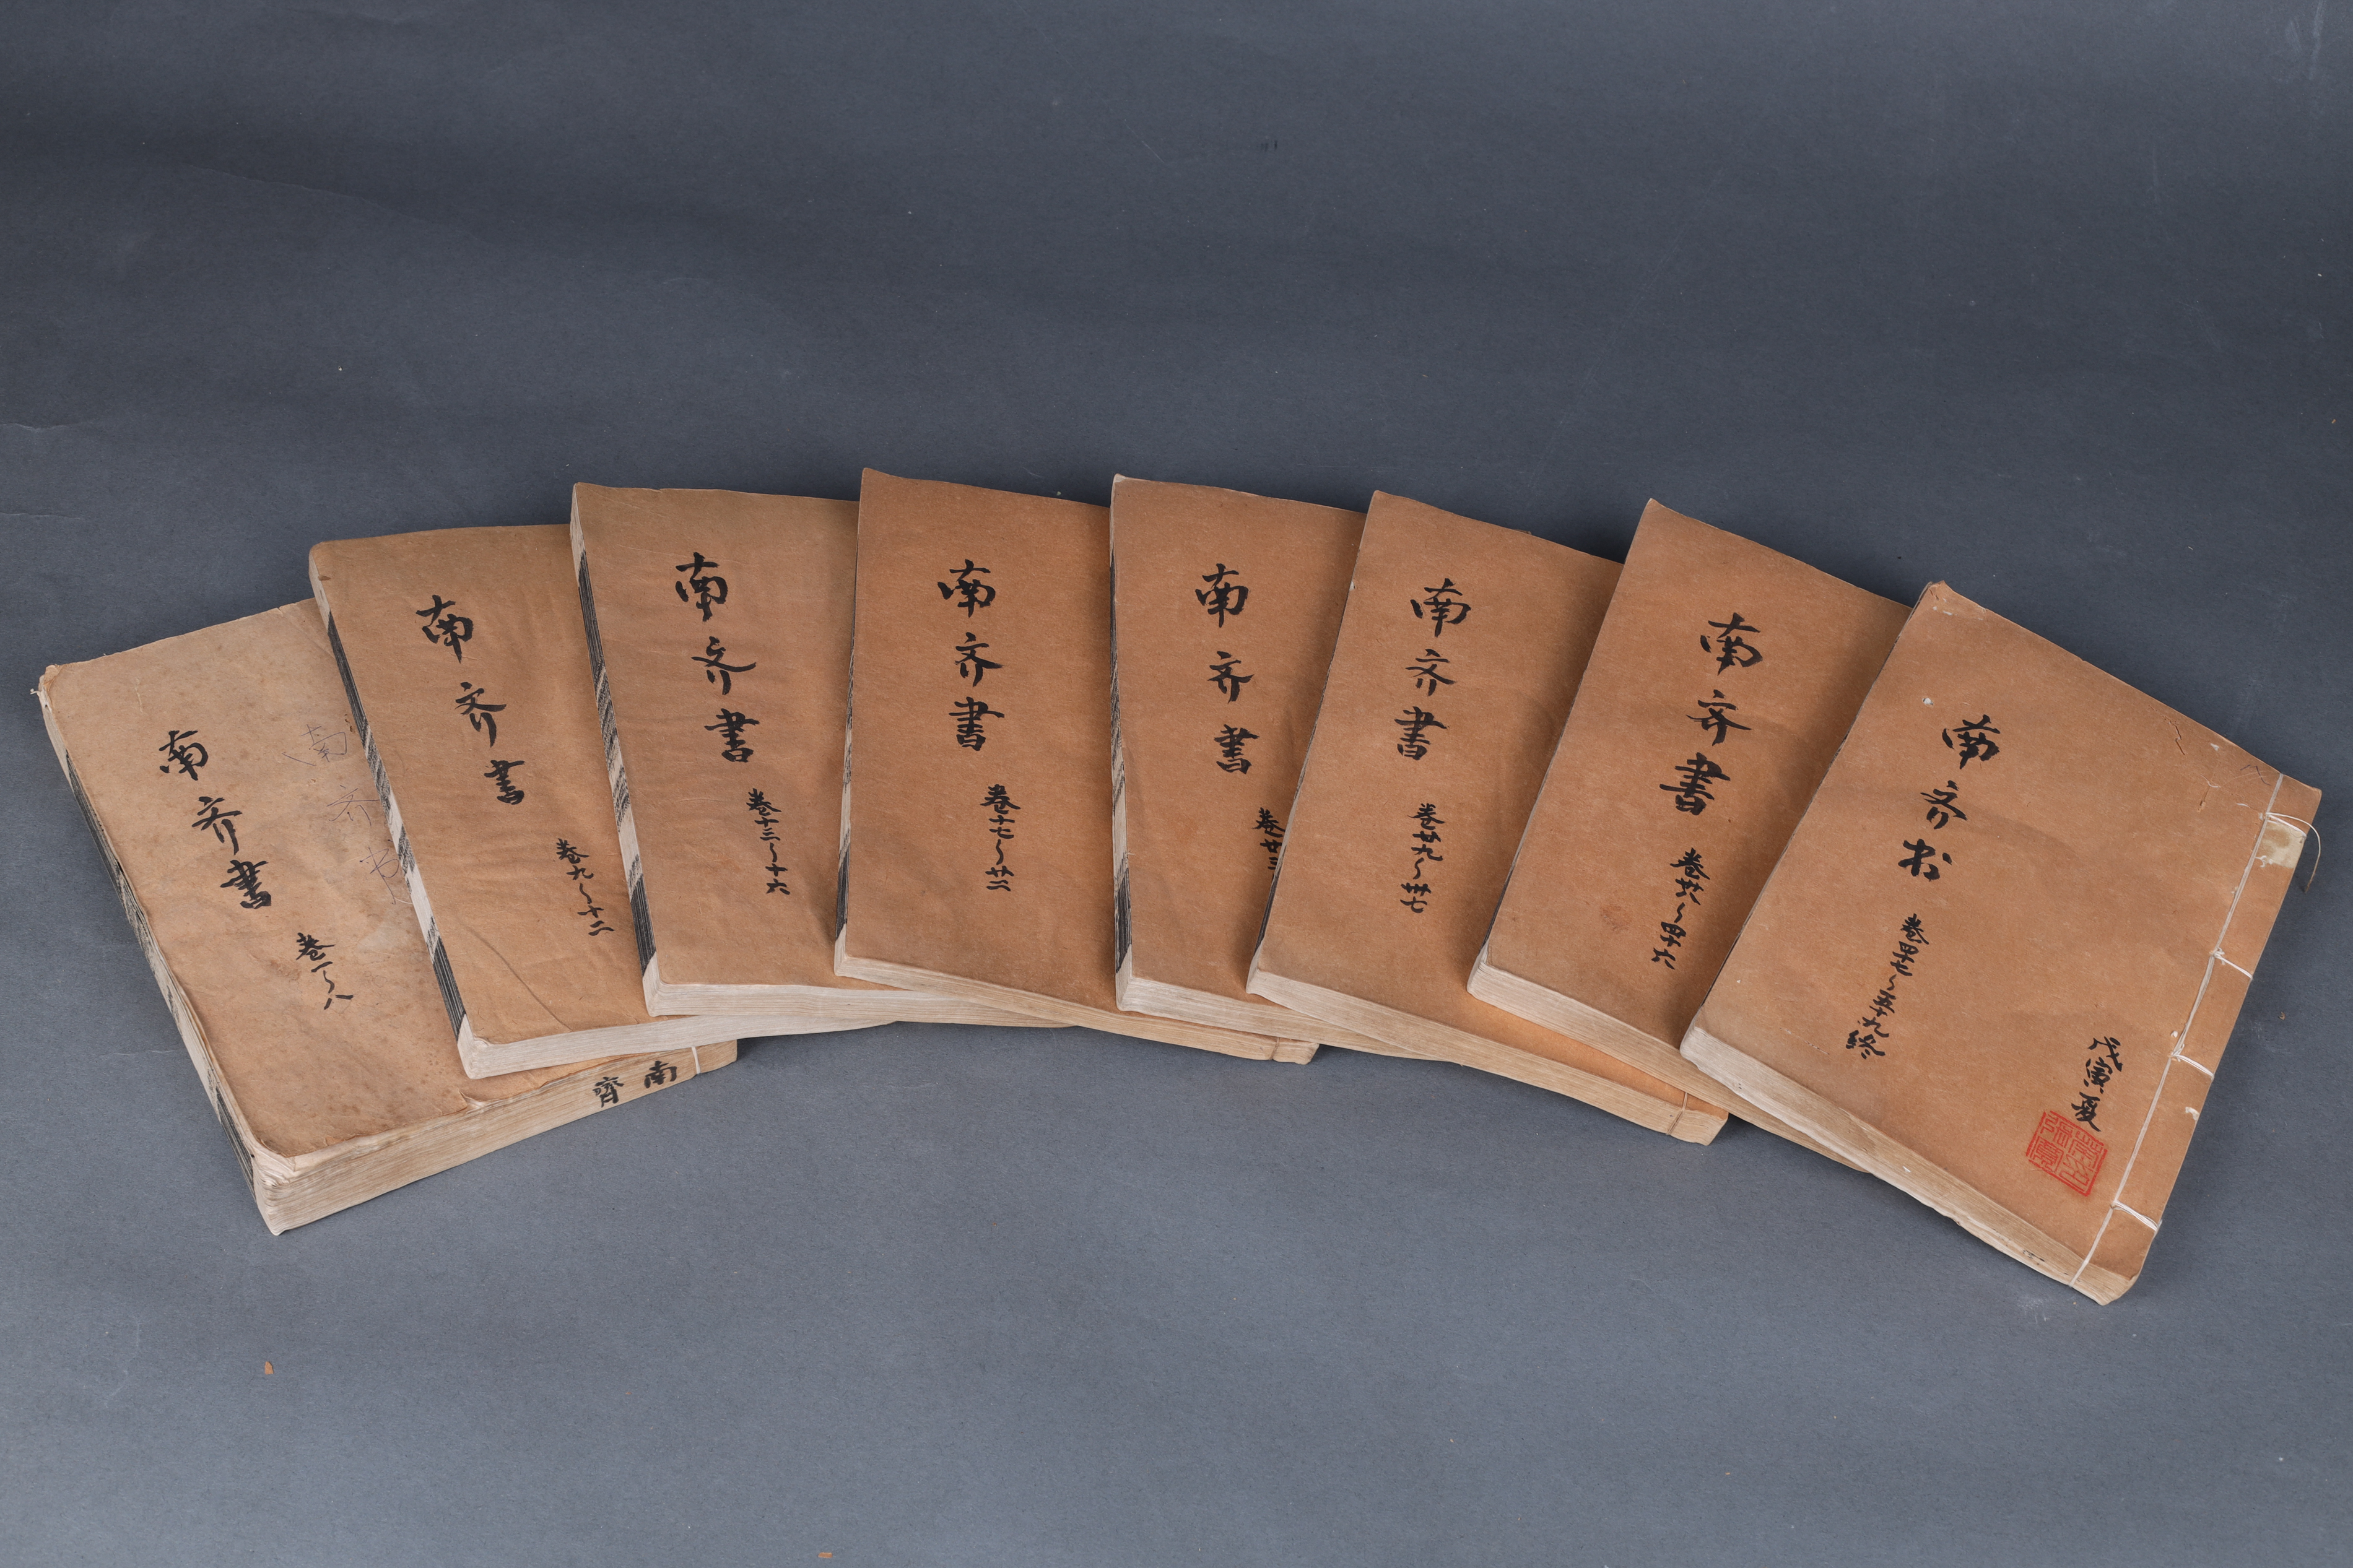 南齐書
卷一~八
南齊
南齐書
卷九~十二
南齐書
卷十三~十六
南齐書
卷十七~廿二
南齐書
卷廿三
南齐書
卷廿九~卅七
南齐書
卷卅八~四十六
南齐书
卷四十七~五十九終
戊寅夏